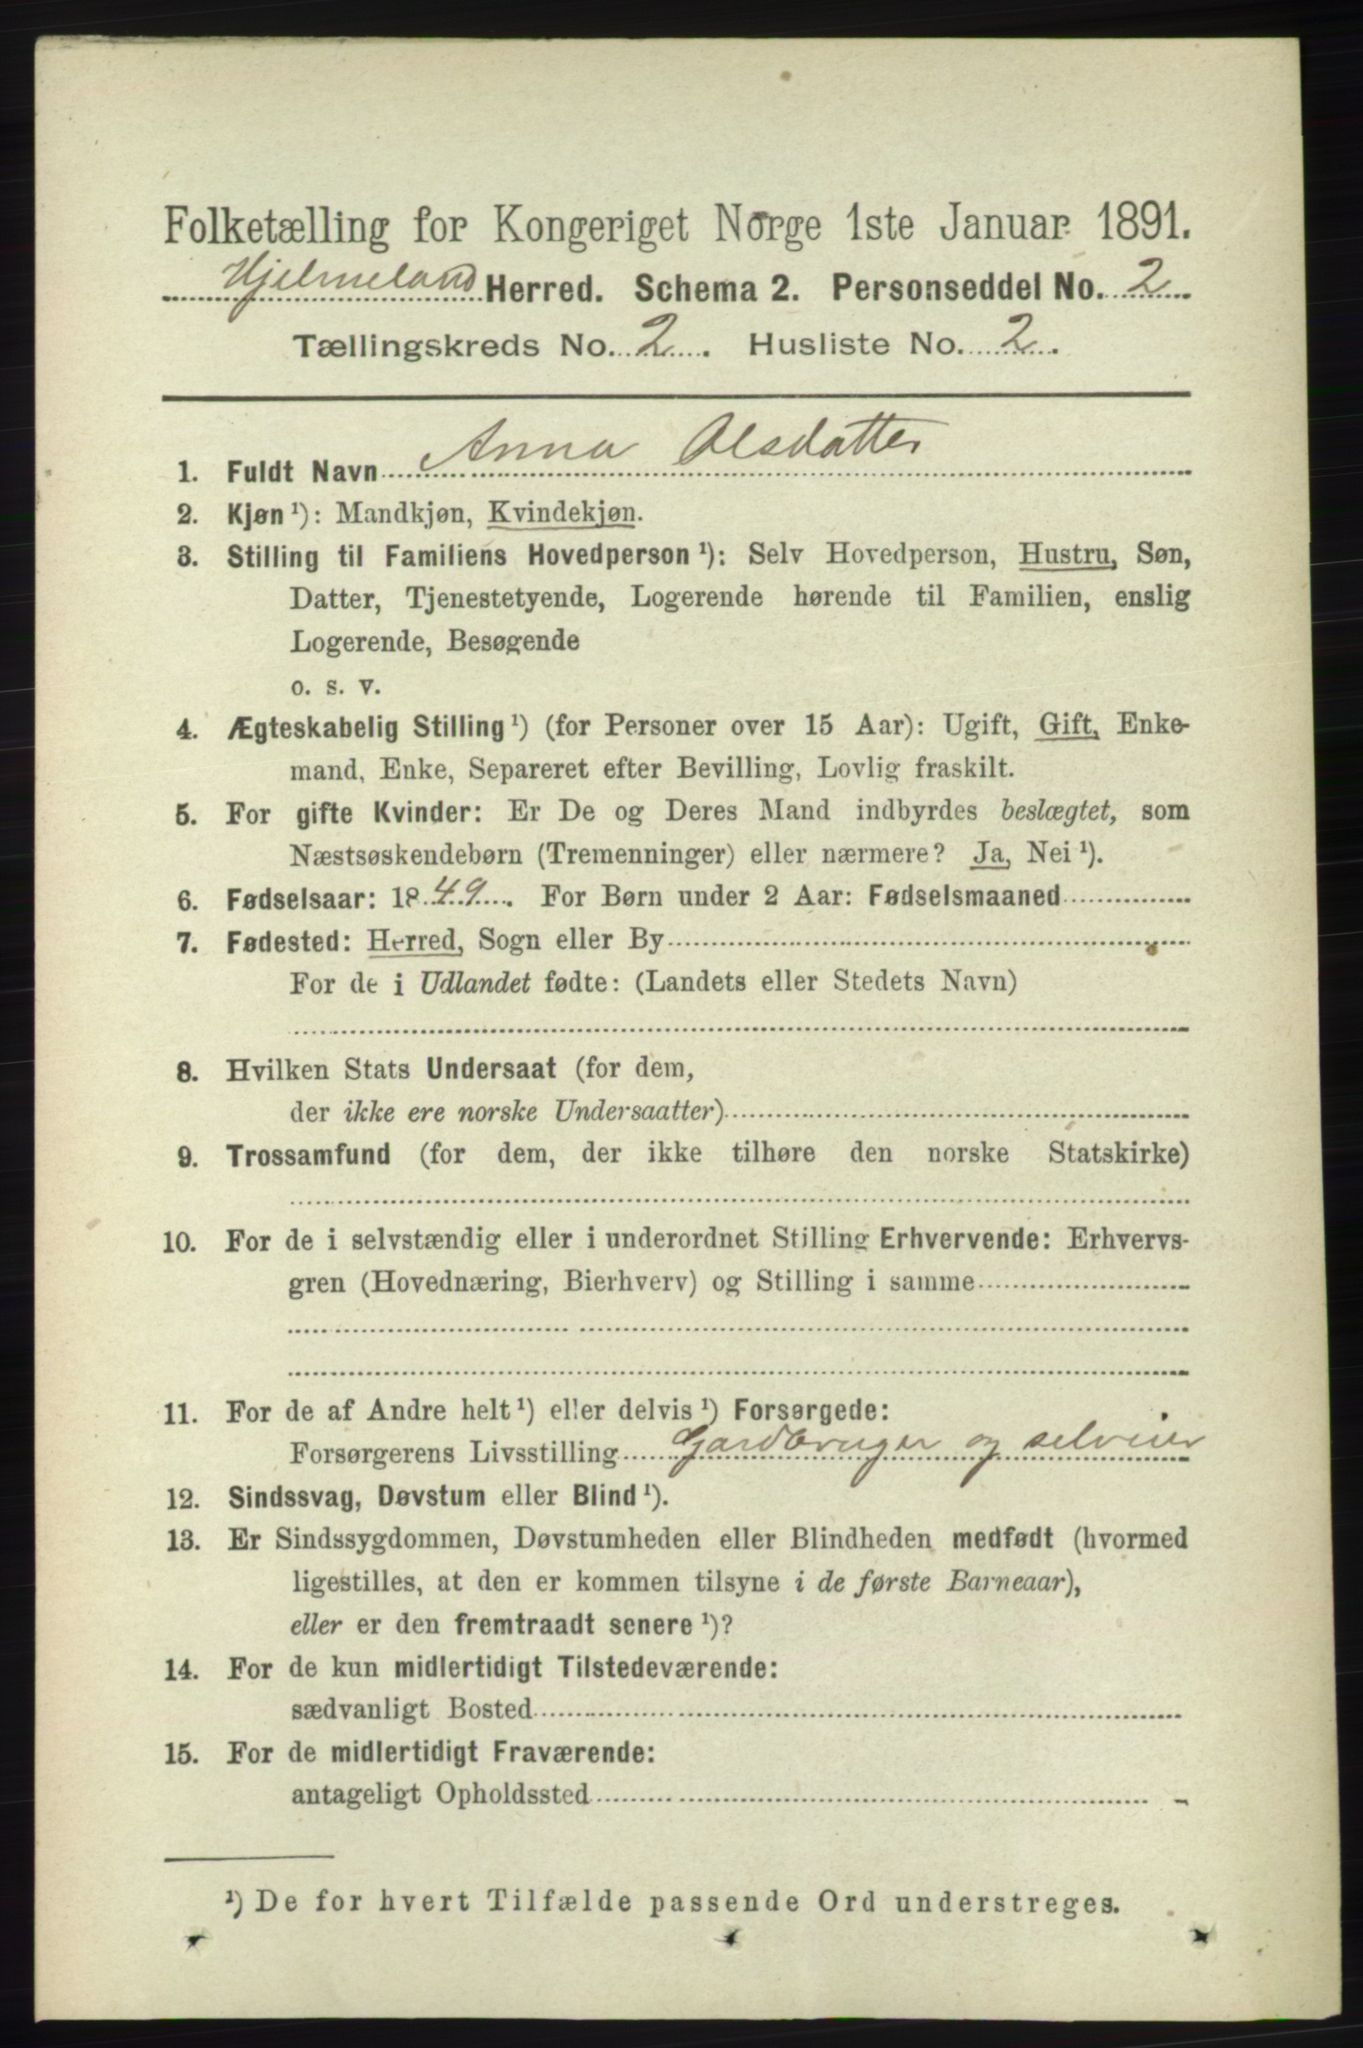 Folketælling for Kongeriget Norge 1ste Januar 1891.
Hjelmeland Herred. Schema 2. Personseddel No. 2
Tællingskreds No. 2. Husliste No. 2.
1. Fuldt Navn Anna Olsdatter
2. Kjøn ¹): Mandkjøn, Kvindekjøn.
3. Stilling til Familiens Hovedperson ¹): Selv Hovedperson, Hustru, Søn,
Datter, Tjenestetyende, Logerende hørende til Familien, enslig
Logerende, Besøgende
o. s. v.
4. Ægteskabelig Stilling ¹) (for Personer over 15 Aar): Ugift, Gift, Enke-
mand, Enke, Separeret efter Bevilling, Lovlig fraskilt.
5. For gifte Kvinder: Er De og Deres Mand indbyrdes beslægtet, som
Næstsøskendebørn (Tremenninger) eller nærmere? Ja, Nei ¹).
6. Fødselsaar: 1849. For Børn under 2 Aar: Fødselsmaaned
7. Fødested: Herred, Sogn eller By
For de i Udlandet fødte: (Landets eller Stedets Navn)
8. Hvilken Stats Undersaat (for dem,
der ikke ere norske Undersaatter)
9. Trossamfund (for dem, der ikke tilhøre den norske Statskirke)
10. For de i selvstændig eller i underordnet Stilling Erhvervende: Erhvervs-
gren (Hovednæring, Bierhverv) og Stilling i samme
11. For de af Andre helt ¹) eller delvis ¹) Forsørgede:
Forsørgerens Livsstilling Gardbruger og selveier
12. Sindssvag, Døvstum eller Blind ¹).
13. Er Sindssygdommen, Døvstumheden eller Blindheden medfødt (hvormed
ligestilles, at den er kommen tilsyne i de første Barneaar),
eller er den fremtraadt senere ¹)?
14. For de kun midlertidigt Tilstedeværende:
sædvanligt Bosted
15. For de midlertidigt Fraværende:
antageligt Opholdssted
¹) De for hvert Tilfælde passende Ord understreges.